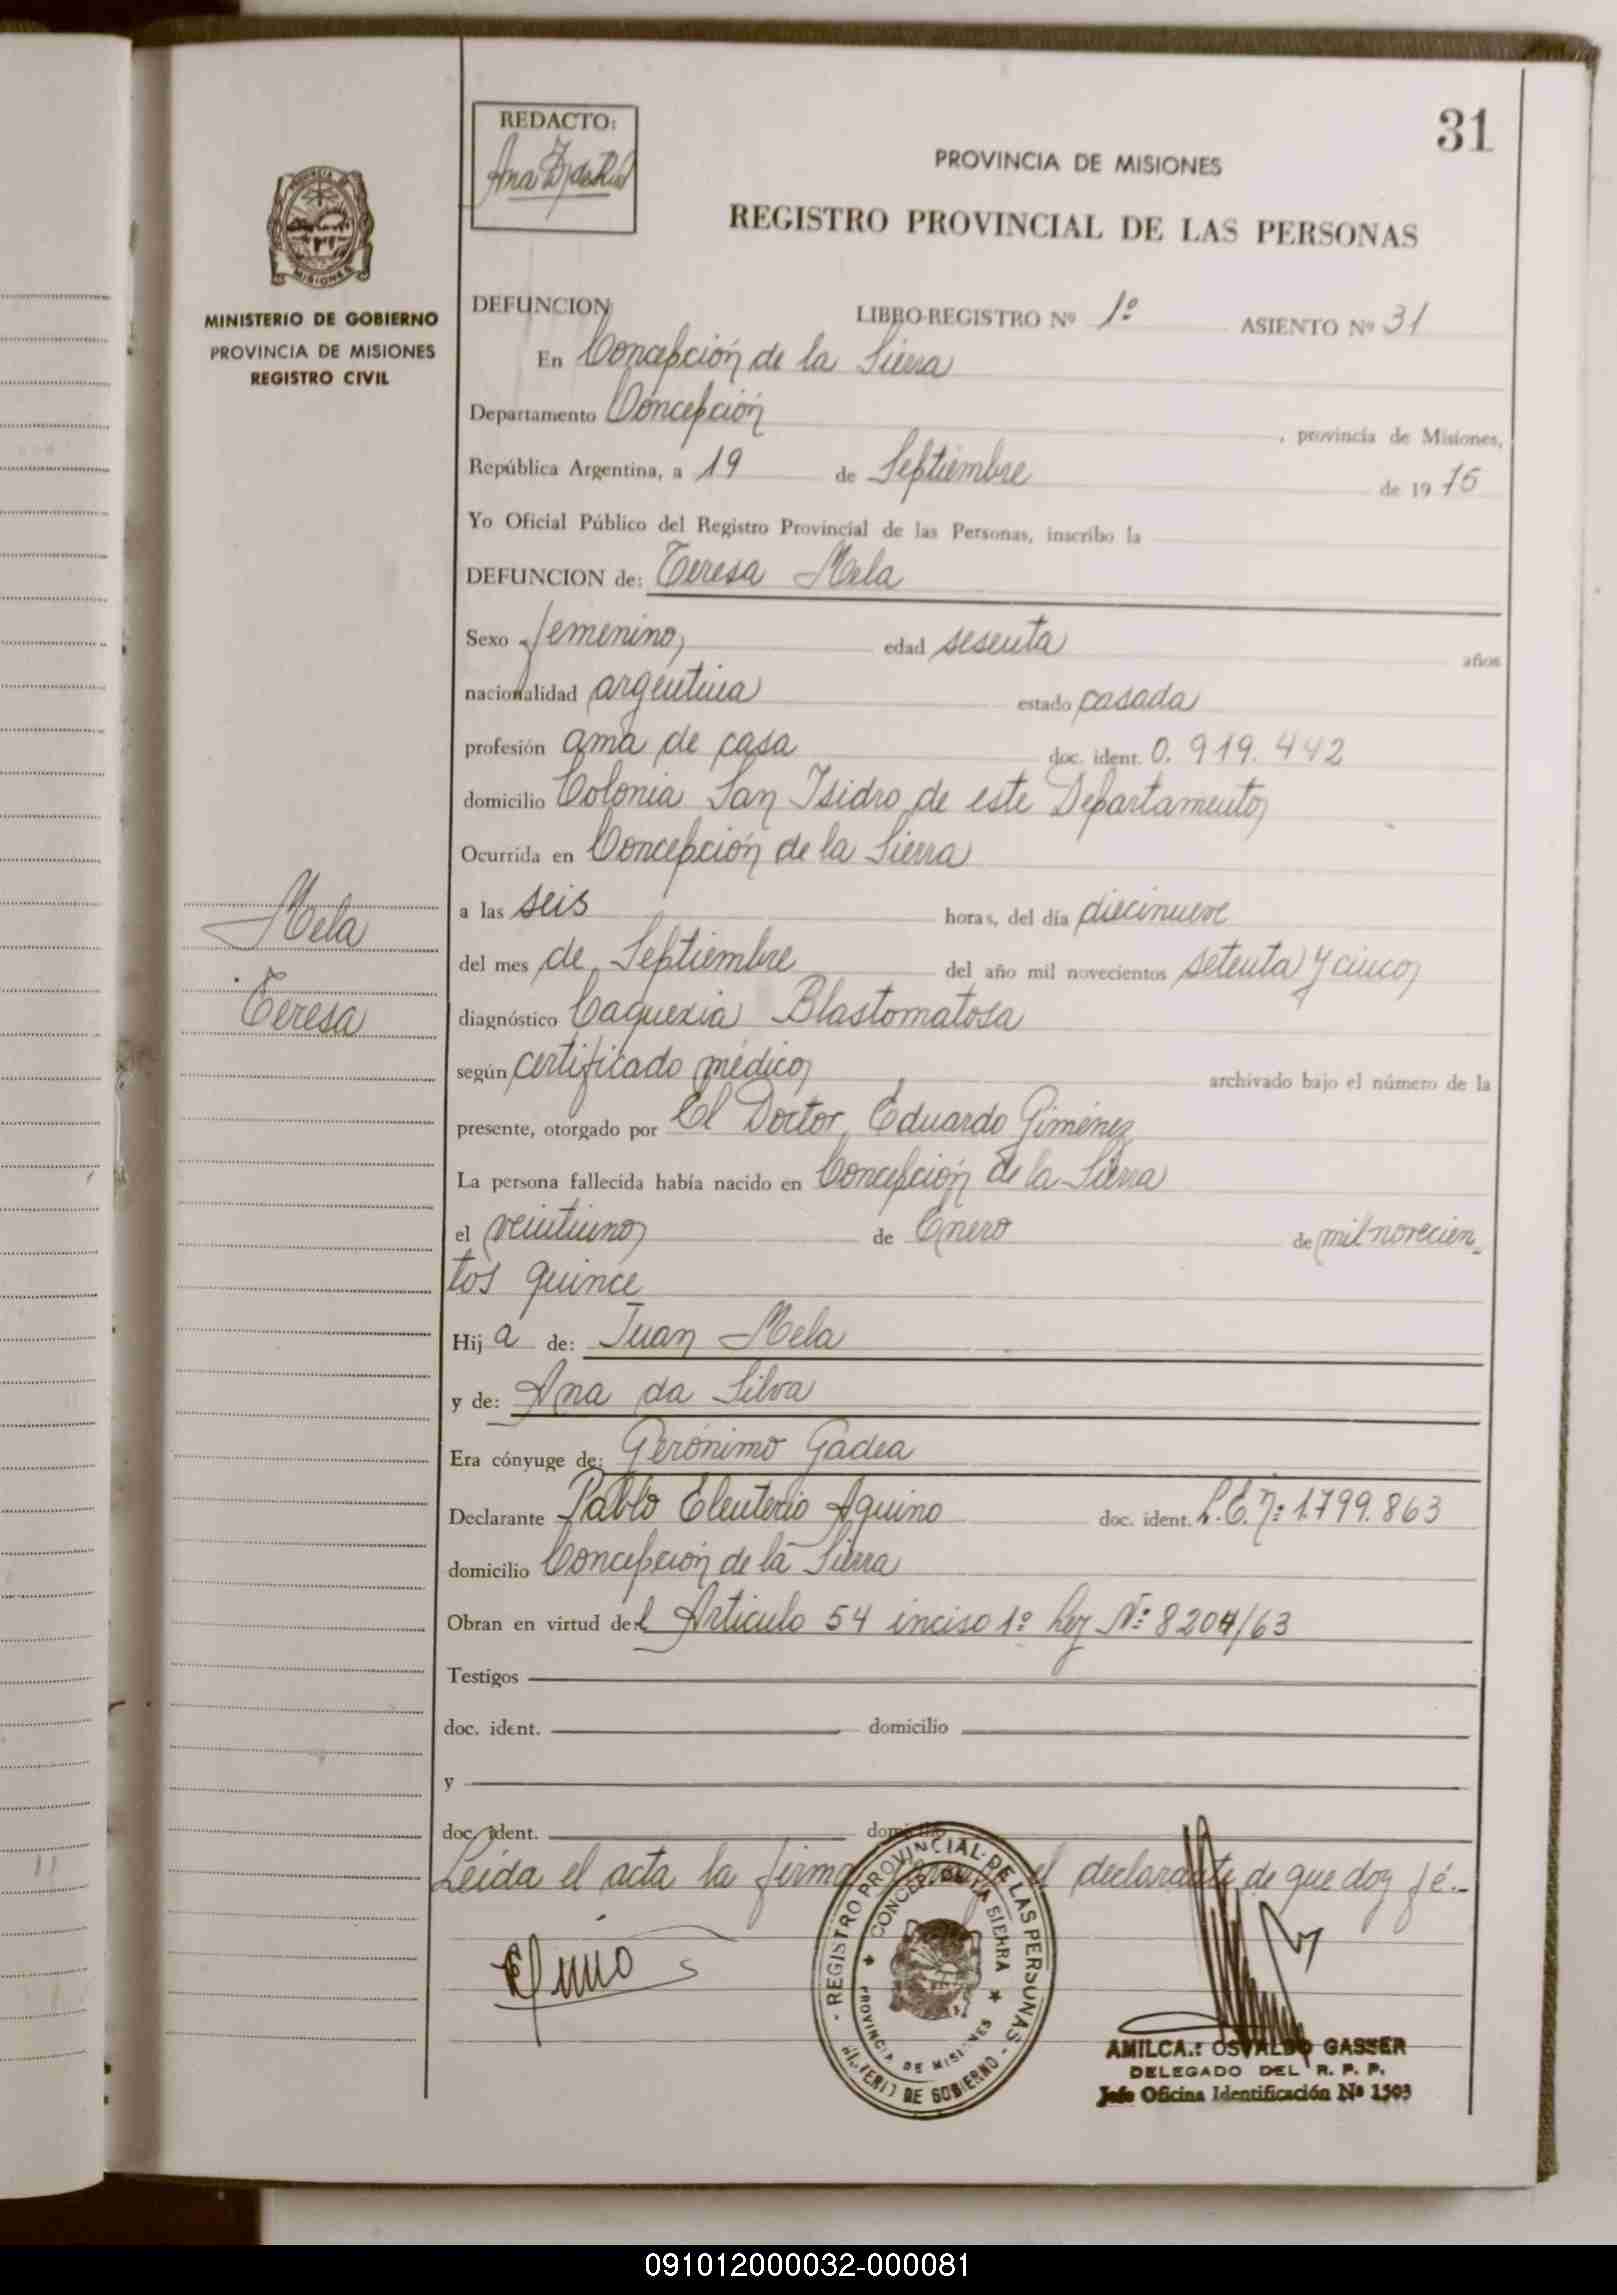 31
REDACTO:
PROVINCIA DE MISIONES
REGISTRO PROVINCIAL DE LAS PERSONAS
MISIONES
MINISTERIO DE GOBIERNO
PROVINCIA DE MISIONES
REGISTRO CIVIL
DEFUNCION LIBRO-REGISTRO Nº 1º ASIENTO Nº 31
En Concepción de la Sierra
Departamento Concepción , provincia de Misiones,
República Argentina, a 19 de Septiembre de 19 75
Yo Oficial Público del Registro Provincial de las Personas, inscribo la
DEFUNCION de: Teresa Mela
Sexo femenino edad sesenta años
nacionalidad argentina estado casada
profesión ama de casa doc. ident. 0.919.442
domicilio Colonia San Isidro de este Departamento
Ocurrida en Concepción de la Sierra
a las seis horas, del día diecinueve
del mes de Septiembre del año mil novecientos setenta y cinco
diagnóstico Caquexia Blastomatosa
según certificado médico archivado bajo el número de la
presente, otorgado por El Doctor Eduardo Giménez
La persona fallecida había nacido en Concepción de la Sierra
el veintiuno de Enero de mil novecien-
tos quince
Hij a de: Juan Mela
y de: Ana da Silva
Era cónyuge de: Gerónimo Gadea
Declarante Pablo Eleuterio Aquino doc. ident. L.E. Nº: 1.799.863
domicilio Concepción de la Sierra
Obran en virtud del Artículo 54 inciso 1º Ley Nº: 8204/63
Testigos
doc. ident. domicilio
y
doc. ident. domicilio
Leída el acta la firma el declarante de que doy fé.-
Mela
Teresa
REGISTRO PROVINCIAL DE LAS PERSONAS
CONCEP. DE LA SIERRA
PROVINCIA DE MISIONES
MINISTERIO DE GOBIERNO
AMILCAR OSVALDO GASSER
DELEGADO DEL R. P. P.
Jefe Oficina Identificación Nº 1503
091012000032-000081